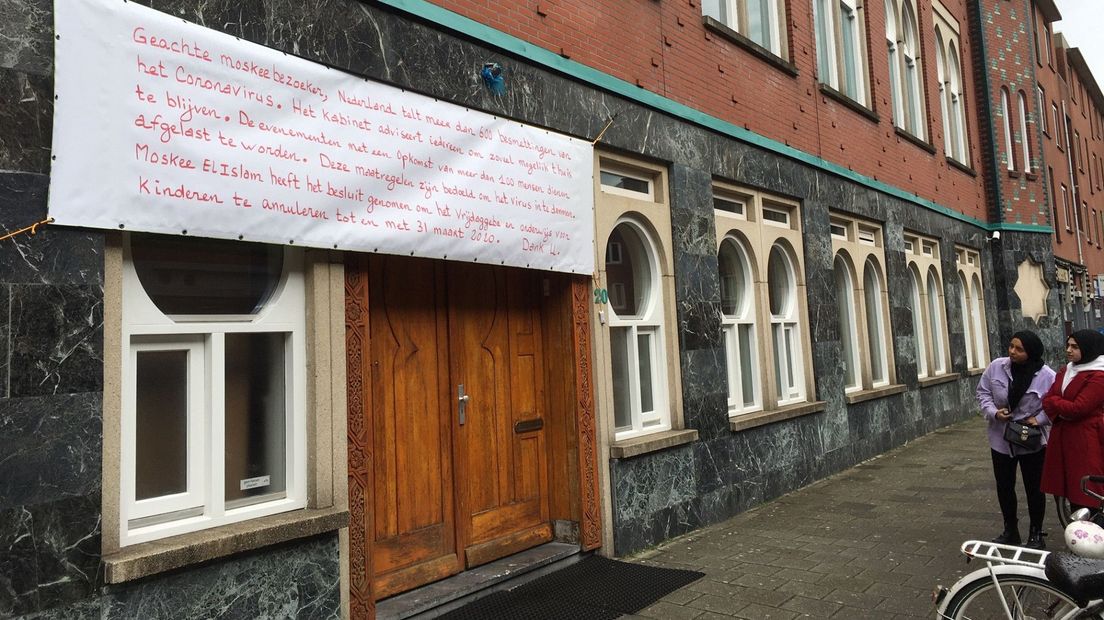 Geachte moskeebezoeker, Nederland telt meer dan 600 besmettingen van
het Coronavirus. Het kabinet adviseert iedereen om zoveel mogelijk thuis
te blijven. De evenementen met een opkomst van meer dan 100 mensen dienen
afgelast te worden. Deze maatregelen zijn bedoeld om het virus in te dammen.
Moskee ElIslam heeft het besluit genomen om het Vrijdaggebe en onderwijs voor
Kinderen te annuleren tot en met 31 maart 2020. Dank U.
20